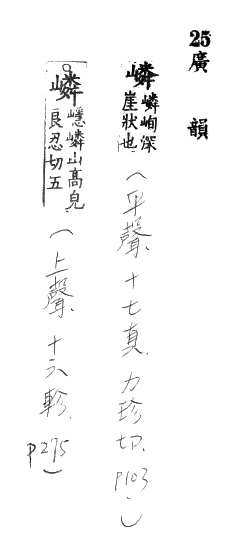 25 廣韻
嶙嶙峋深崖狀也(平聲、十七真、力珍切、P103.)
嶙嶾嶙山高皃良忍切五(上聲、十六軫、P275)